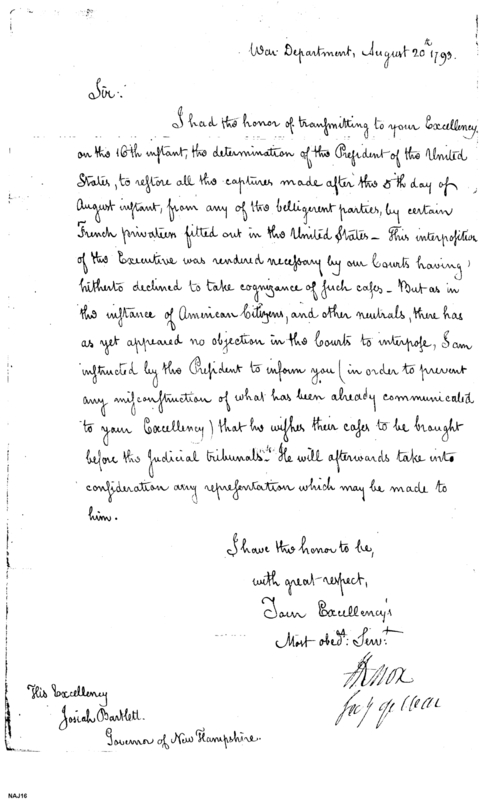 War Department, August 20th 1793.
Sir:
I had the honor of transmitting to your Excellency,
on the 16th instant, the determination of the President of the United
States, to restore all the captures made after the 5th day of
August instant, from any of the belligerent parties, by certain
French privateers fitted out in the United States – This interposition
of the Executive was rendered necessary by our Courts having
hitherto declined to take cognizance of such cases – But as in
the instance of American Citizens, and other neutrals, there has
as yet appeared no objection in the Courts to interpose, I am
instructed by the President to inform you (in order to prevent
any misconstruction of what has been already communicated
to your Excellency) that he wishes their cases to be brought
before the Judicial tribunals – He will afterwards take into
consideration any representation which may be made to
him.
I have the honor to be,
with great respect,
Your Excellency's
Most obedt. Servt.
HKnox
Secy of War
His Excellency
Josiah Bartlett.
Governor of New Hampshire.
NAJ16